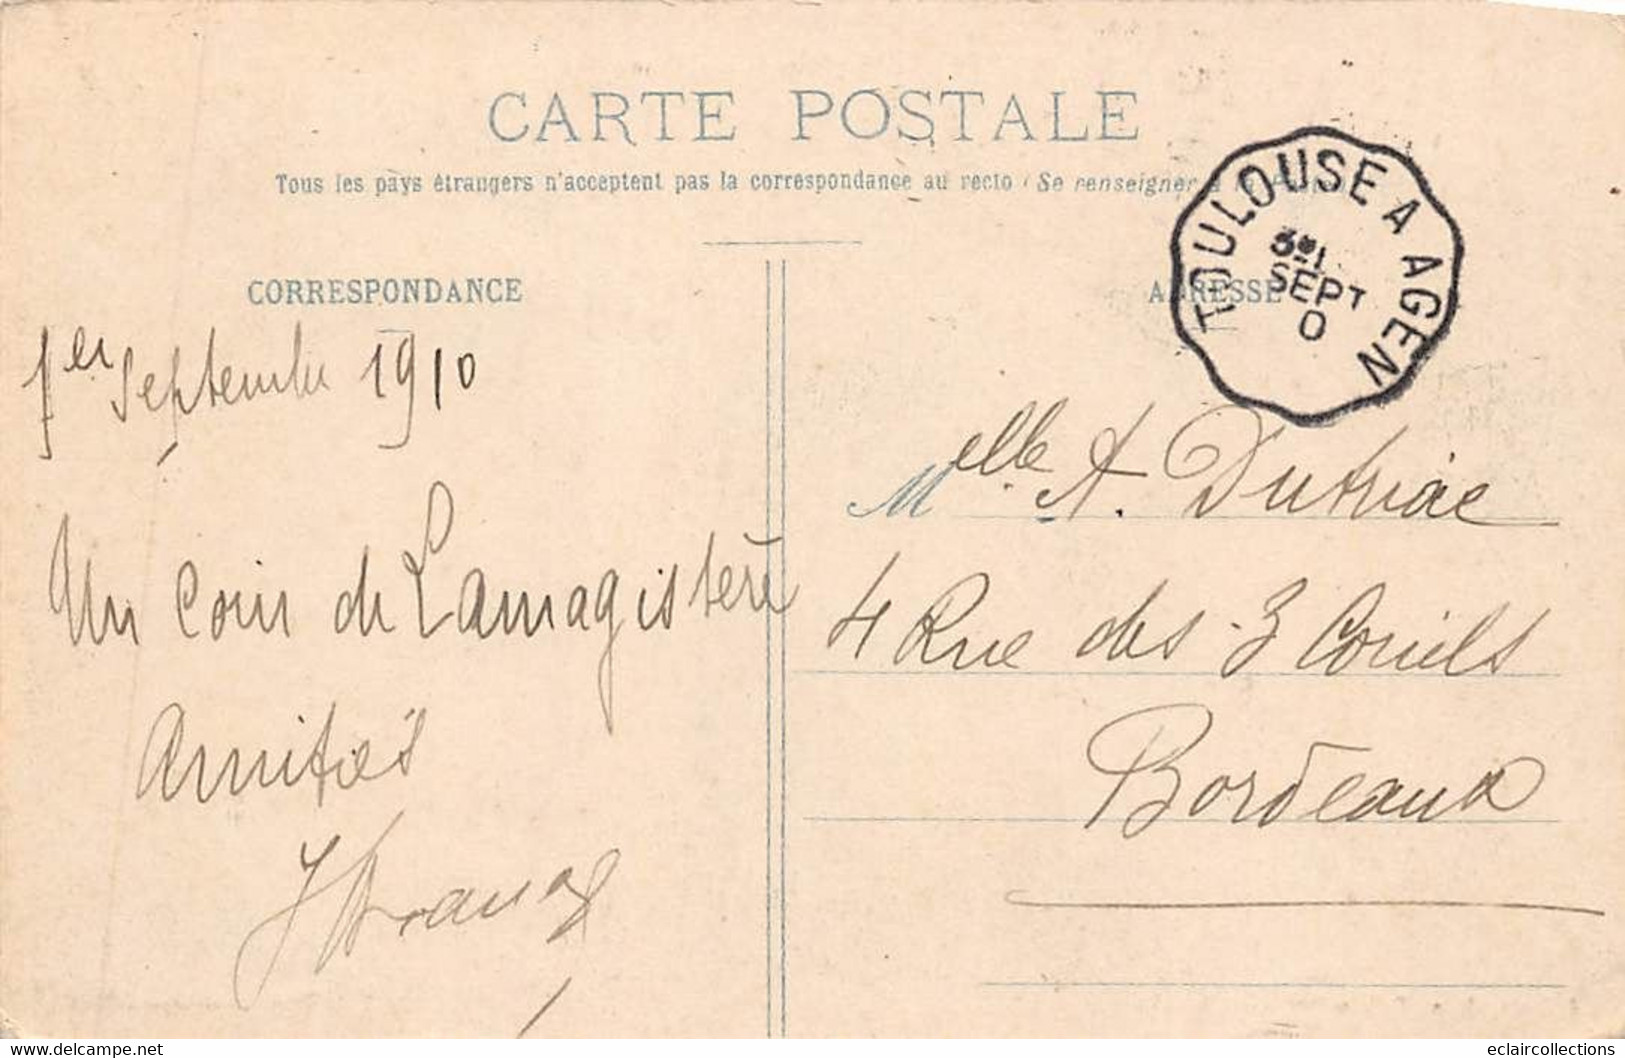 CARTE POSTALE
Tous les pays étrangers n'acceptent pas la correspondance au recto (Se renseigner à la
CORRESPONDANCE
ADRESSE
TOULOUSE A AGEN
SEPT
0
1er Septembre 1910
Un Coin de Lamagistère
Amitiés
Melle A. Dutriac
4 Rue des 3 Conils
Bordeaux
delcampe.net
eclaircollections